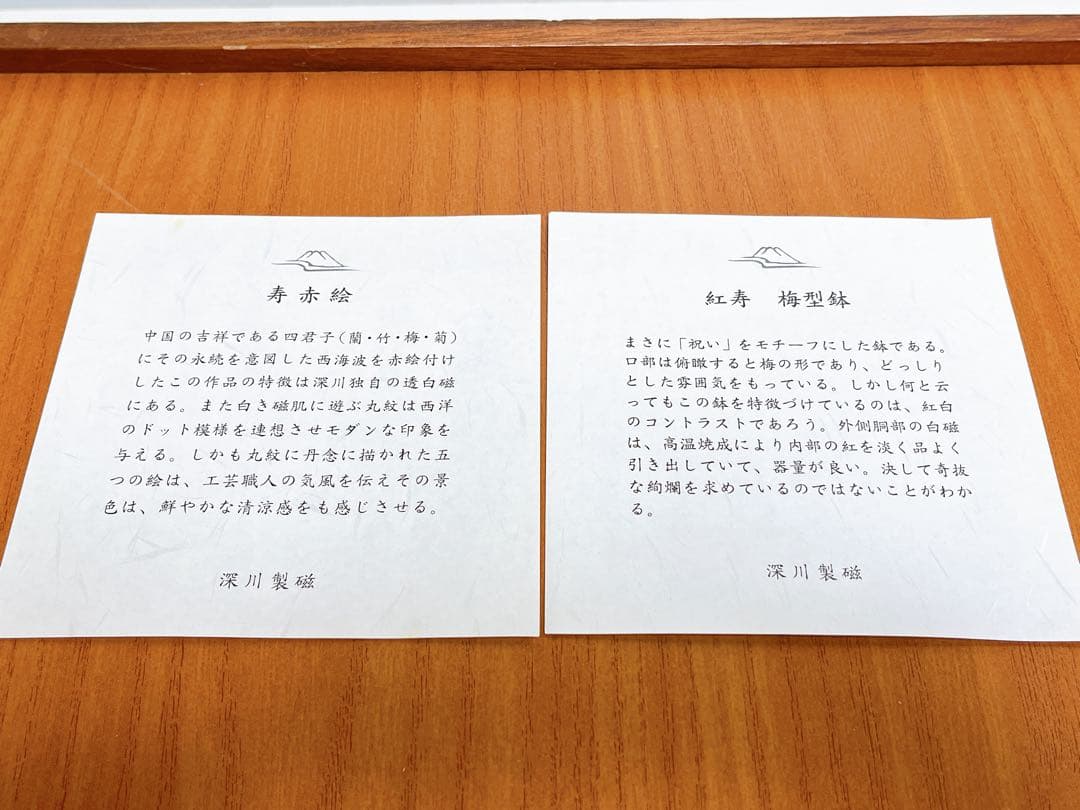 寿赤絵
中国の吉祥である四君子(蘭・竹・梅・菊)
にその永続を意図した西海波を赤絵付け
したこの作品の特徴は深川独自の透白磁
にある。また白き磁肌に遊ぶ丸紋は西洋
のドット模様を連想させモダンな印象を
与える。しかも丸紋に丹念に描かれた五
つの絵は、工芸職人の気風を伝えその景
色は、鮮やかな清涼感をも感じさせる。
深川製磁
紅寿 梅型鉢
まさに「祝い」をモチーフにした鉢である。
口部は俯瞰すると梅の形であり、どっしり
とした雰囲気をもっている。しかし何と云
ってもこの鉢を特徴づけているのは、紅白
のコントラストであろう。外側胴部の白磁
は、高温焼成により内部の紅を淡く品よく
引き出していて、器量が良い。決して奇抜
な絢爛を求めているのではないことがわか
る。
深川製磁